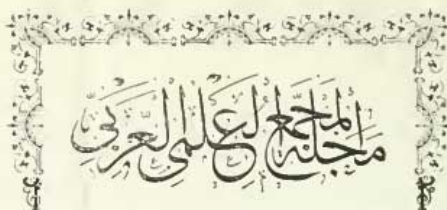 مجلة المجمع العلمي العربي